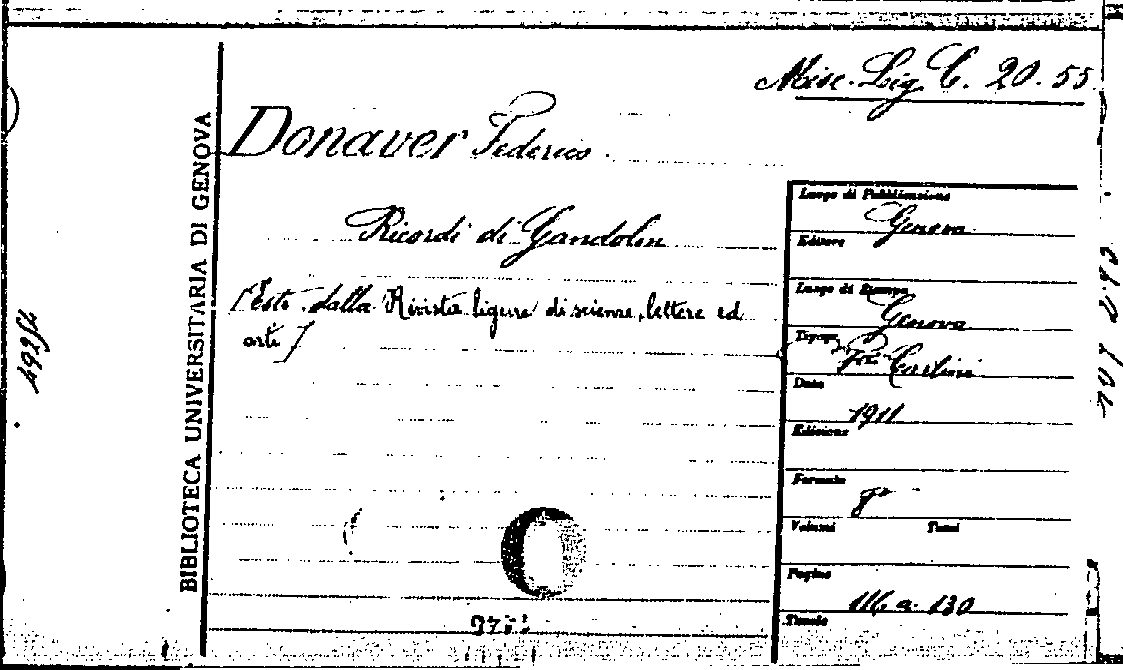 Misc. Lig. C. 20. 55
Donaver Federico
Ricordi di Gandolin
[Estr. dalla Rivista ligure di scienze, lettere ed
arti]
BIBLIOTECA UNIVERSITARIA DI GENOVA
Luogo di Pubblicazione
Genova
Editore
Luogo di Stampa
Genova
Tipogr.
Carlini
Data
1911
Edizione
Formato
8°
Volumi Tomi
Pagine
116 a 130
Tavole